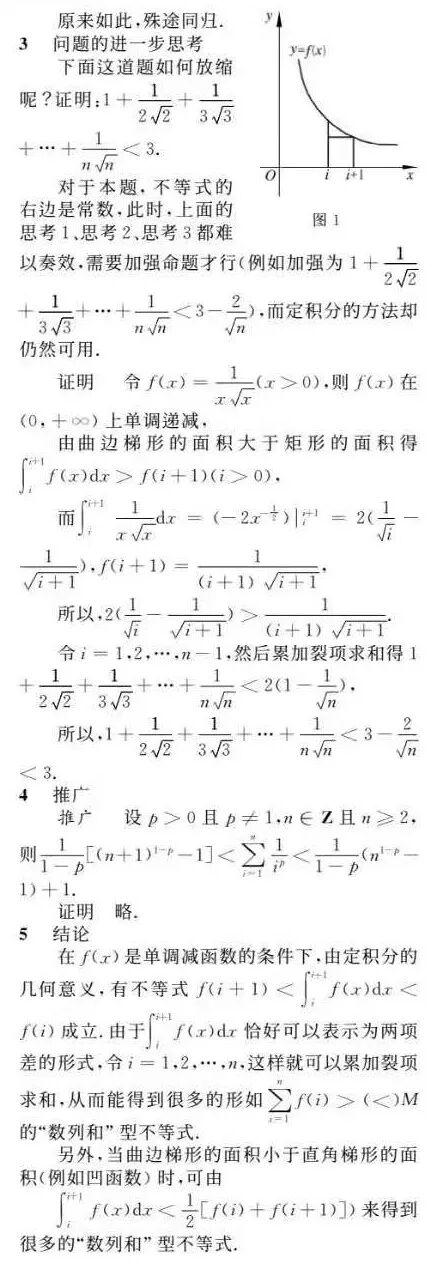 原来如此,殊途同归.
3 问题的进一步思考
下面这道题如何放缩
呢?证明:1+\frac{1}{2\sqrt{2}}+\frac{1}{3\sqrt{3}}
+…+\frac{1}{n\sqrt{n}}<3.
y
y=f(x)
O i i+1 x
图 1
对于本题,不等式的
右边是常数,此时,上面的
思考1、思考2、思考3都难
以奏效,需要加强命题才行(例如加强为 1+\frac{1}{2\sqrt{2}}
+\frac{1}{3\sqrt{3}}+…+\frac{1}{n\sqrt{n}}<3-\frac{2}{\sqrt{n}}),而定积分的方法却
仍然可用.
证明 令 f(x)=\frac{1}{x\sqrt{x}}(x>0),则 f(x) 在
(0,+∞) 上单调递减,
由曲边梯形的面积大于矩形的面积得
\int_{i}^{i+1} f(x)dx>f(i+1)(i>0),
而\int_{i}^{i+1} \frac{1}{x\sqrt{x}}dx=(-2x^{-\frac{1}{2}})|_{i}^{i+1}=2(\frac{1}{\sqrt{i}}-
\frac{1}{\sqrt{i+1}}),f(i+1)=\frac{1}{(i+1)\sqrt{i+1}},
所以,2(\frac{1}{\sqrt{i}}-\frac{1}{\sqrt{i+1}})>\frac{1}{(i+1)\sqrt{i+1}}.
令 i=1,2,…,n-1,然后累加裂项求和得 1
+\frac{1}{2\sqrt{2}}+\frac{1}{3\sqrt{3}}+…+\frac{1}{n\sqrt{n}}<2(1-\frac{1}{\sqrt{n}}),
所以,1+\frac{1}{2\sqrt{2}}+\frac{1}{3\sqrt{3}}+…+\frac{1}{n\sqrt{n}}<3-\frac{2}{\sqrt{n}}
<3.
4 推广
推广 设 p>0 且 p≠1,n∈Z 且 n≥2,
则\frac{1}{1-p}[(n+1)^{1-p}-1]<\sum_{i=1}^{n}\frac{1}{i^{p}}<\frac{1}{1-p}(n^{1-p}-
1)+1.
证明 略.
5 结论
在 f(x) 是单调减函数的条件下,由定积分的
几何意义,有不等式 f(i+1)<\int_{i}^{i+1} f(x)dx<
f(i) 成立.由于\int_{i}^{i+1} f(x)dx 恰好可以表示为两项
差的形式,令 i=1,2,…,n,这样就可以累加裂项
求和,从而能得到很多的形如\sum_{i=1}^{n} f(i)>(<)M
的“数列和”型不等式.
另外,当曲边梯形的面积小于直角梯形的面
积(例如凹函数)时,可由
\int_{i}^{i+1} f(x)dx<\frac{1}{2}[f(i)+f(i+1)])来得到
很多的“数列和”型不等式.